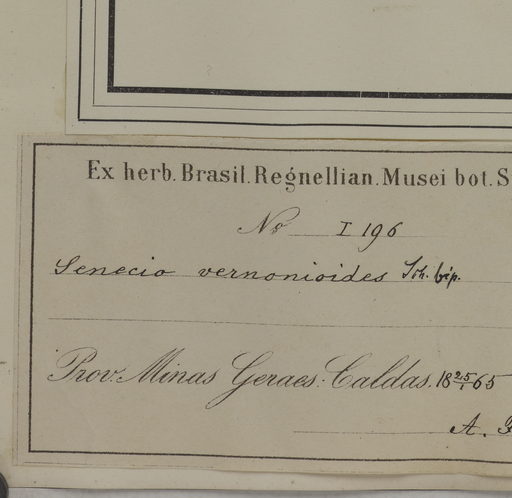 Ex herb. Brasil. Regnellian. Musei bot. S
No I 196
Senecio vernonioides Sch. bip.
Prov. Minas Geraes: Caldas. 18 25/1 65
A.